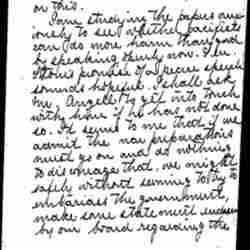 on this.
I am studying the papers anx
iously to see whether pacifists
can do more harm than good
by speaking openly now. Ex-
promise of a peace speech
sounds hopeful. I shall ask
Mr. Angell to get into touch
with him if he has not done
so. It seems to me that if we
admit the war preparations
must go on and do nothing
to discourage that, we might
safely without seeming to try to
embarrass the government,
make some statement
by our board regarding the